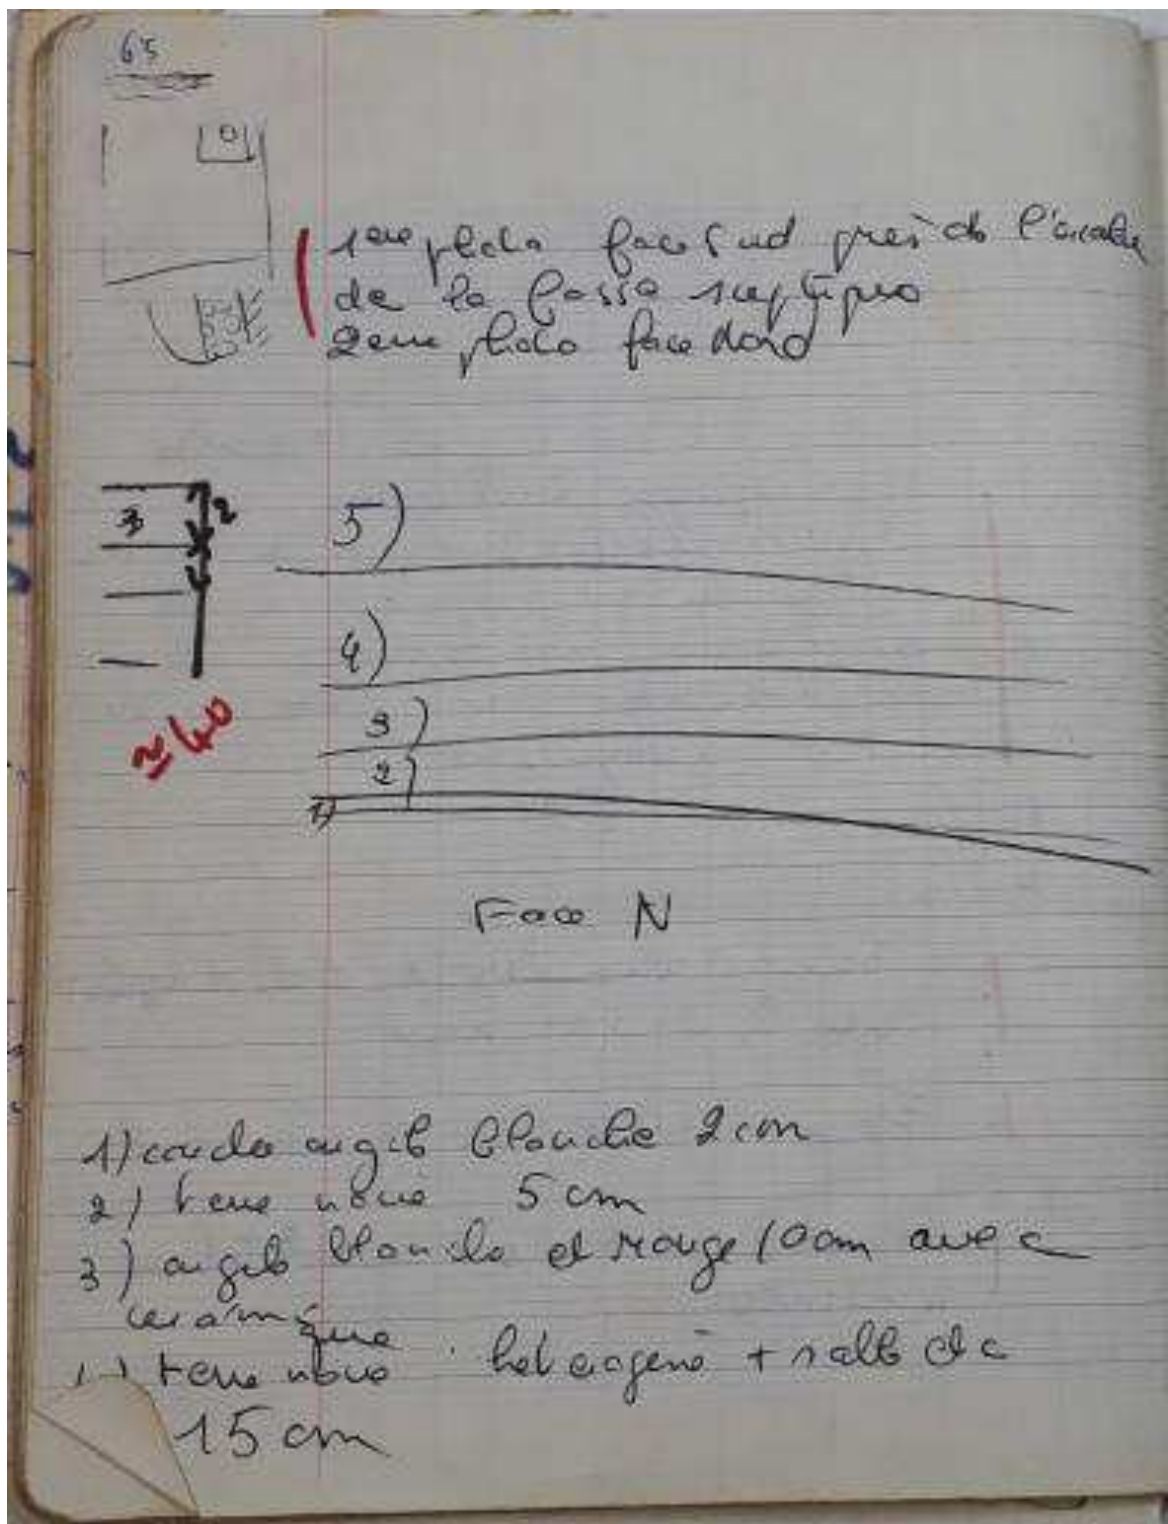 65
1ere photo face Sud près de l'
de la fosse septique
2eme photo face Nord
3 2
≃ 40
5)
4)
3)
2)
1)
Face N
1) couche argile blanche 2 cm
2) terre noire 5 cm
3) argile blanche et rouge 10 cm avec
ceramique
terre noire heterogène + sable
15 cm